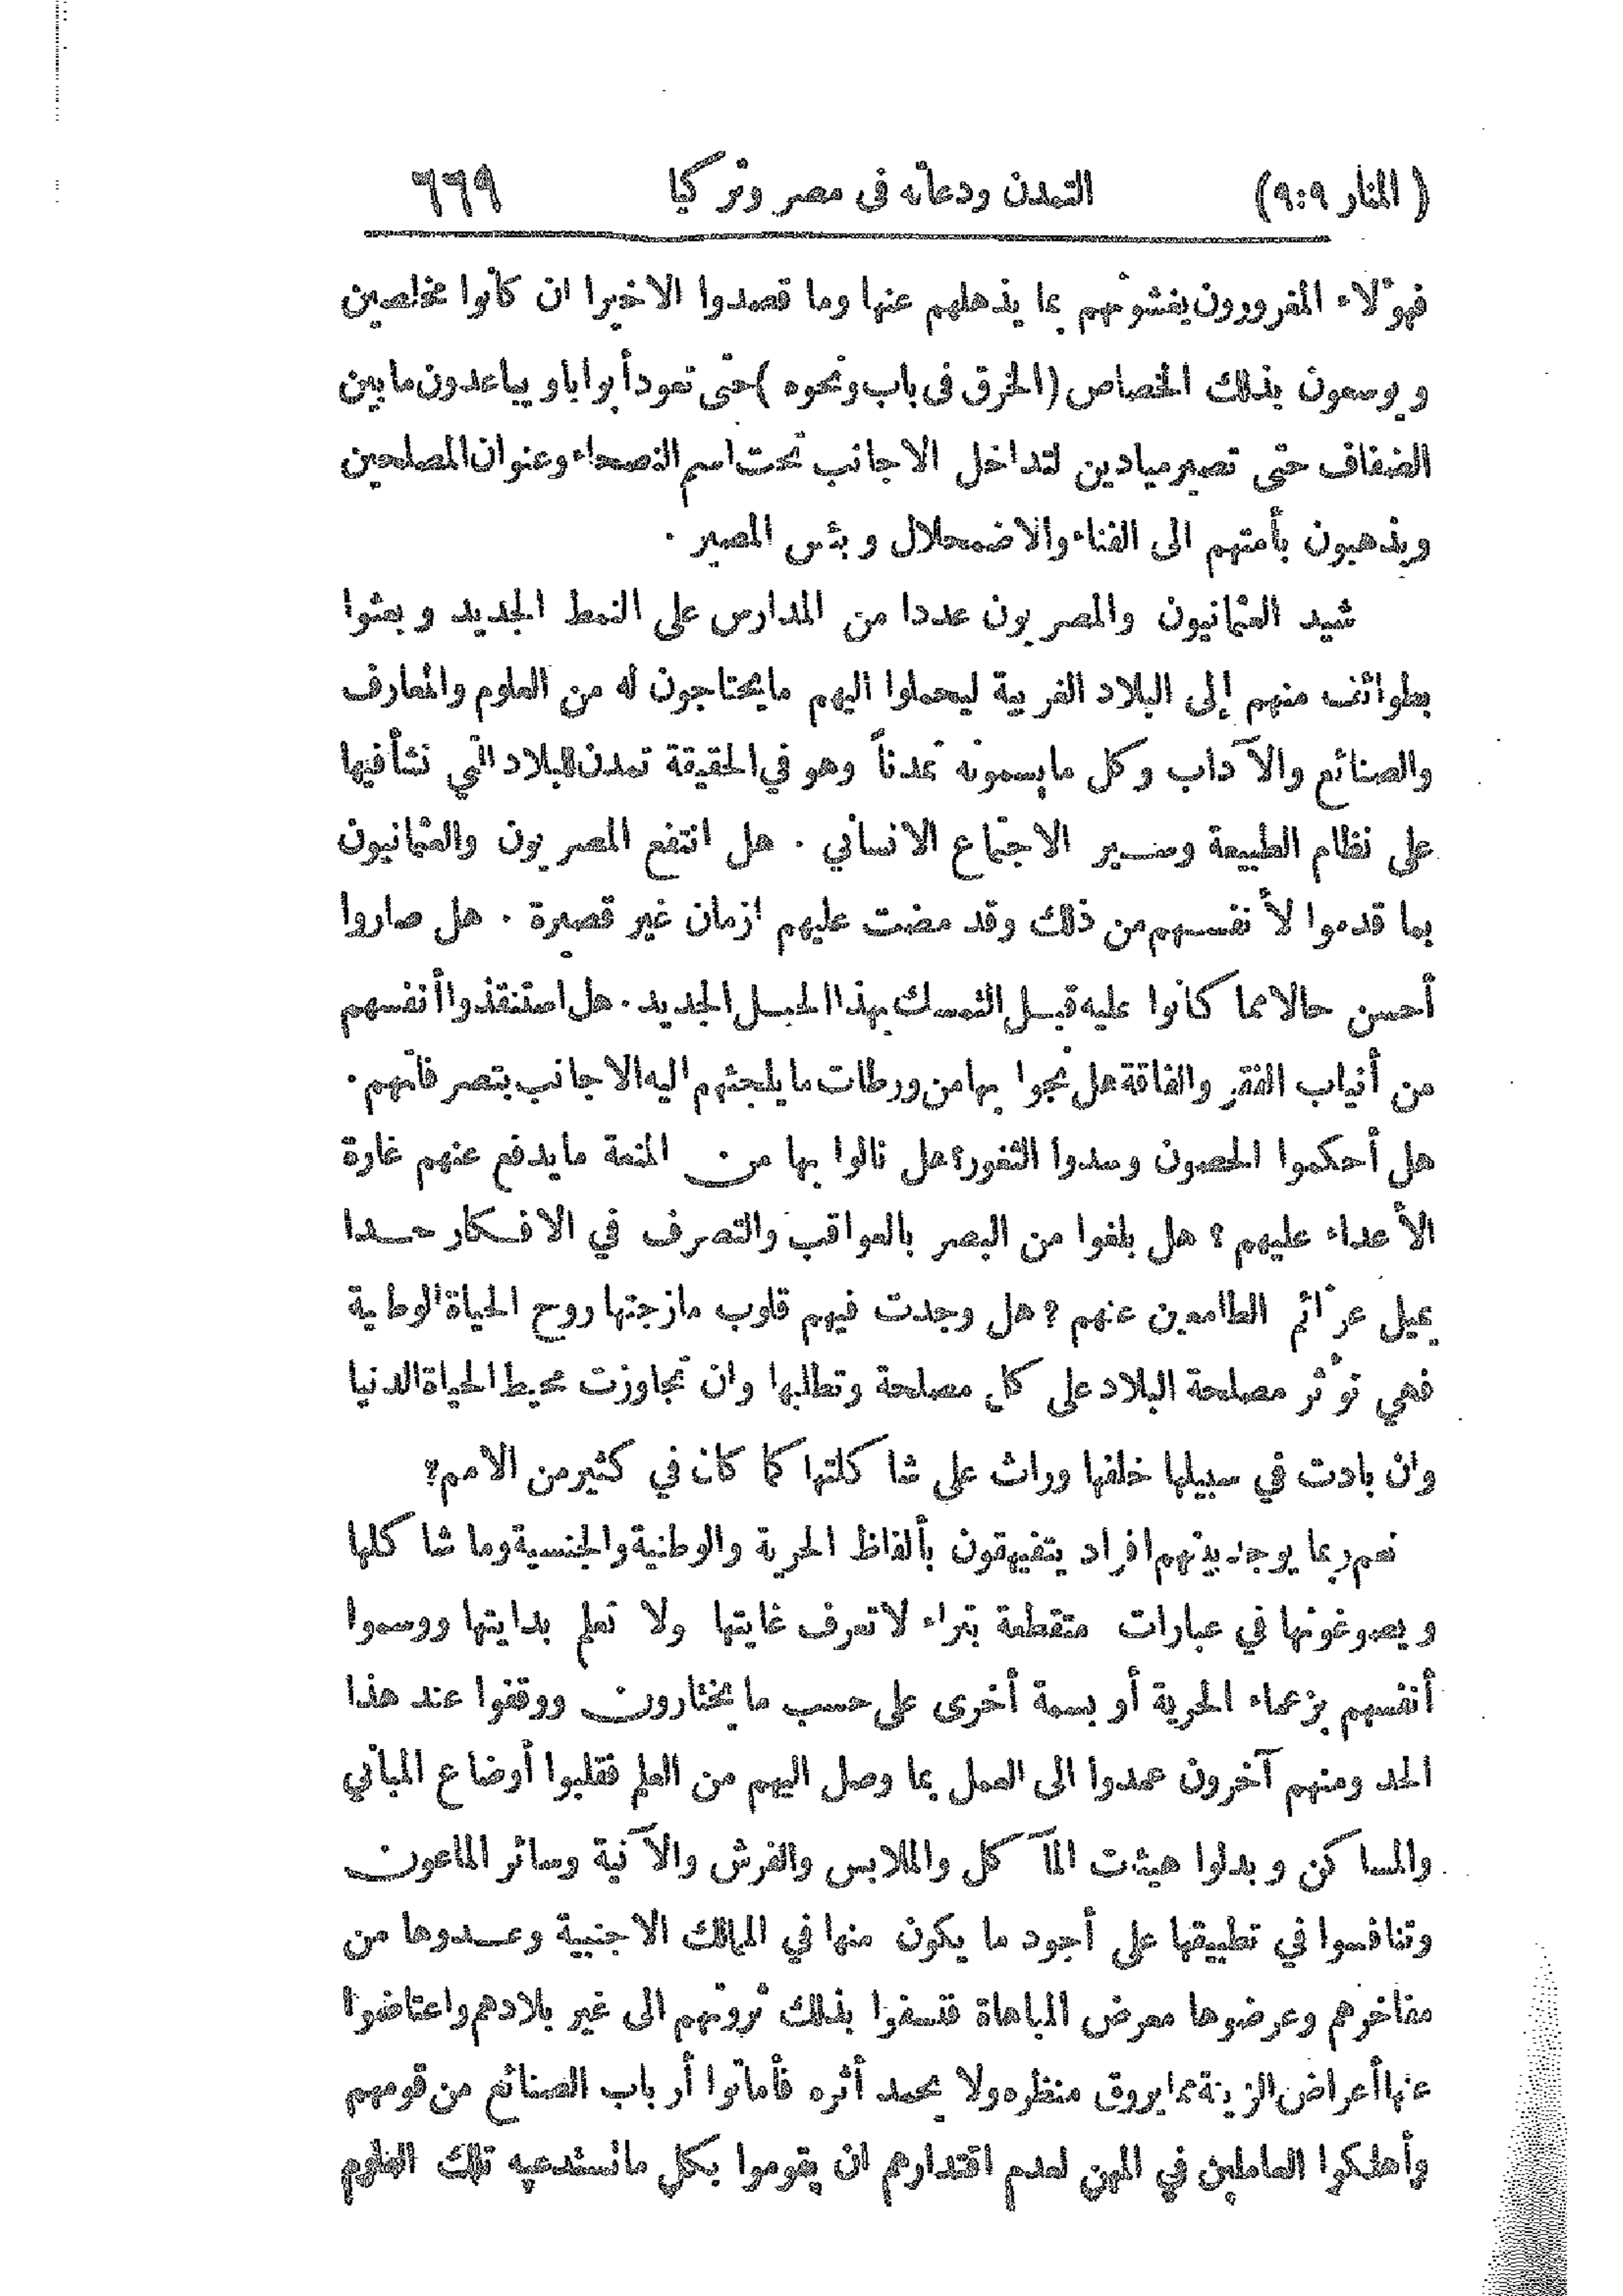 ( المنار ٩:٩) التمدن ودعاته فى مصر وتركيا ٦٦٩
فهؤلاء المغرورون يغشونهم بما يذهلهم عنها وما قصدوا الاخيرا ان كانوا مخلصين
ويوسعون بذلك الخصاص (الخرق فى باب ونحوه )حتى تعود أبوابا ويباعدون مابين
الضفاف حتى تصير ميادين لتداخل الاجانب تحت اسم النصحاء وعنوان المصلحين
ويذهبون بأمتهم الى الفناء والاضمحلال وبئس المصير .
شيد العثمانيون والمصريون عددا من المدارس على النمط الجديد وبعثوا
بطوائف منهم إلى البلاد الغربية ليحملوا اليهم مايحتاجون له من العلوم والمعارف
والصنائع والآداب وكل مايسمونه تمدناً وهو في الحقيقة تمدن للبلاد التي نشأ فيها
على نظام الطبيعة وسير الاجتماع الانساني . هل انتفع المصريون والعثمانيون
بما قدموا لأنفسهم من ذلك وقد مضت عليهم ازمان غير قصيرة . هل صاروا
أحسن حالا مما كانوا عليه قبل التمسك بهذا الحبل الجديد . هل استنقذوا أنفسهم
من أنياب الفقر والفاقة هل نجوا بها من ورطات مايلجئهم اليه الاجانب بتصرفاتهم .
هل أحكموا الحصون وسدوا الثغور؟ هل نالوا بها من المنعة مايدفع عنهم غارة
الأعداء عليهم ؟ هل بلغوا من البصر بالعواقب والتصرف في الافكار حدا
يميل عزائم الطامعين عنهم ؟ هل وجدت فيهم قلوب مازجتها روح الحياة الوطنية
فهي تؤثر مصلحة البلاد على كل مصلحة وتطلبها وان تجاوزت محيط الحياة الدنيا
وان بادت في سبيلها خلفها وراث على شاكلتها كما كان في كثير من الامم؟
نعم ربما يوجد بينهم افراد يتفيهقون بألفاظ الحرية والوطنية والجنسية وما شاكلها
ويصوغونها في عبارات متقطعة بتراء لاتعرف غايتها ولا تعلم بدايتها ووسموا
أنفسهم بزعماء الحرية أو بسمة أخرى على حسب ما يختارون ووقفوا عند هذا
الحد ومنهم آخرون عمدوا الى العمل بما وصل اليهم من العلم فقلبوا أوضاع المباني
والمساكن وبدلوا هيئات المآكل والملابس والفرش والآنية وسائر الماعون
وتنافسوا في تطبيقها على أجود ما يكون منها في الممالك الاجنبية وعدوها من
مفاخرهم وعرضوها معرض المباهاة فنسفوا بذلك ثروتهم الى غير بلادهم واعتاضوا
عنها أعراض الزينة مما يروق منظره ولا يحمد أثره فأماتوا أرباب الصنائع من قومهم
وأهلكوا العاملين في المهن لعدم اقتدارهم ان يقوموا بكل ماتستدعيه تلك العلوم